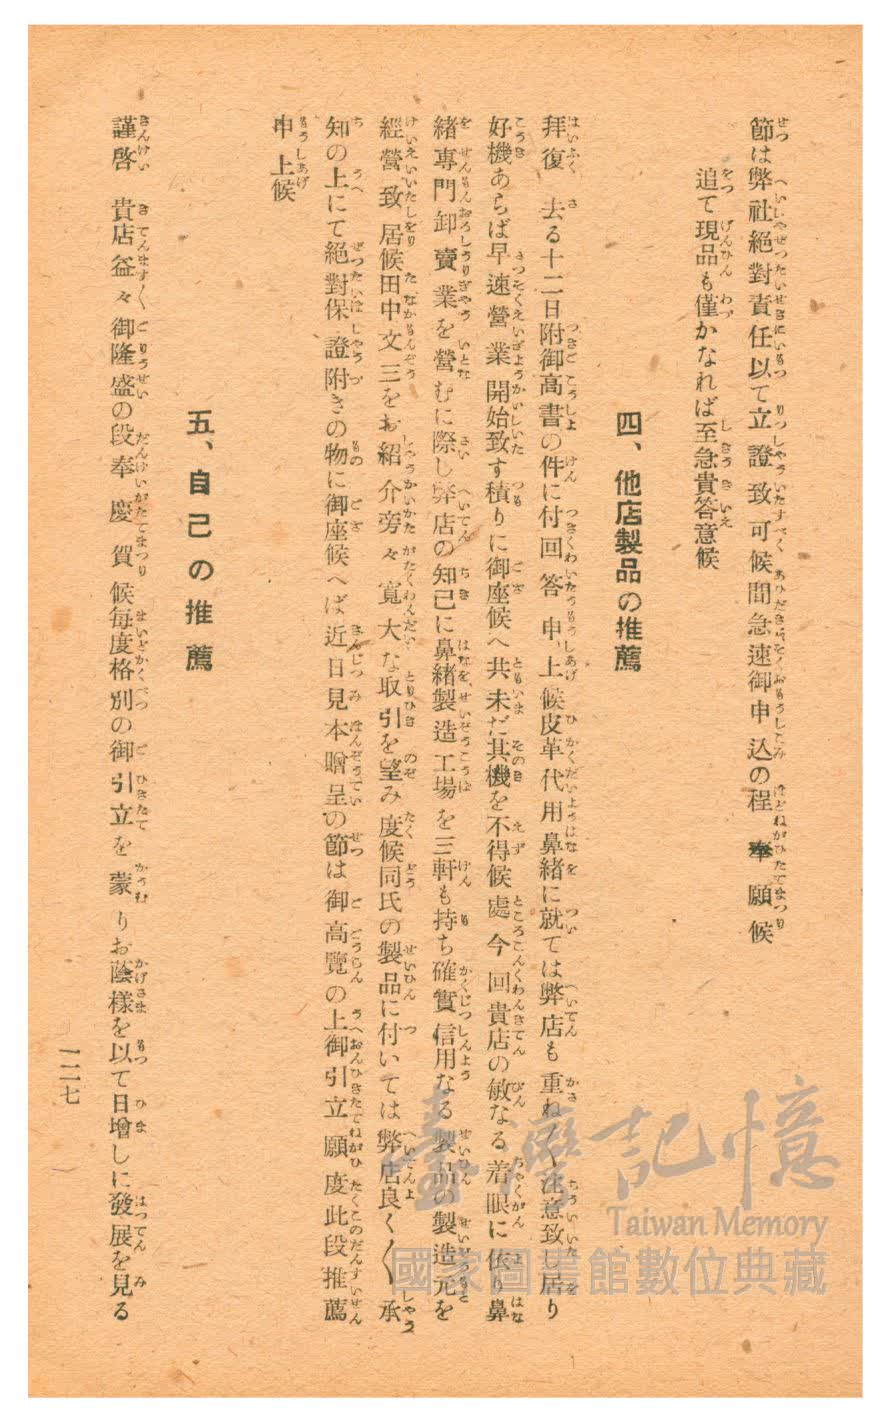 節は弊社絕對責任以て立證致可候間急速御申込の程奉願候
追て現品も僅かなれば至急貴答意候
四、他店製品の推薦
拜復　去る十二日附御高書の件に付回答申上候皮革代用鼻緒に就ては弊店も重ね〱注意致し居り
好機あらば早速營業開始致す積りに御座候へ共未だ其機を不得候處今回貴店の敏なる着眼に依り鼻
緒專門卸賣業を營むに際し弊店の知己に鼻緒製造工場を三軒も持ち確實信用なる製品の製造元を
經營致居候田中文三をお紹介旁々寬大な取引を望み度候同氏の製品に付いては弊店良く〱承
知の上にて絕對保證附きの物に御座候へば近日見本贈呈の節は御高覽の上御引立願度此段推薦
申上候
五、自己の推薦
謹啓　貴店益々御隆盛の段奉慶賀候每度格別の御引立を蒙りお蔭樣を以て日增しに發展を見る
一二七
臺灣記憶
Taiwan Memory
國家圖書館數位典藏